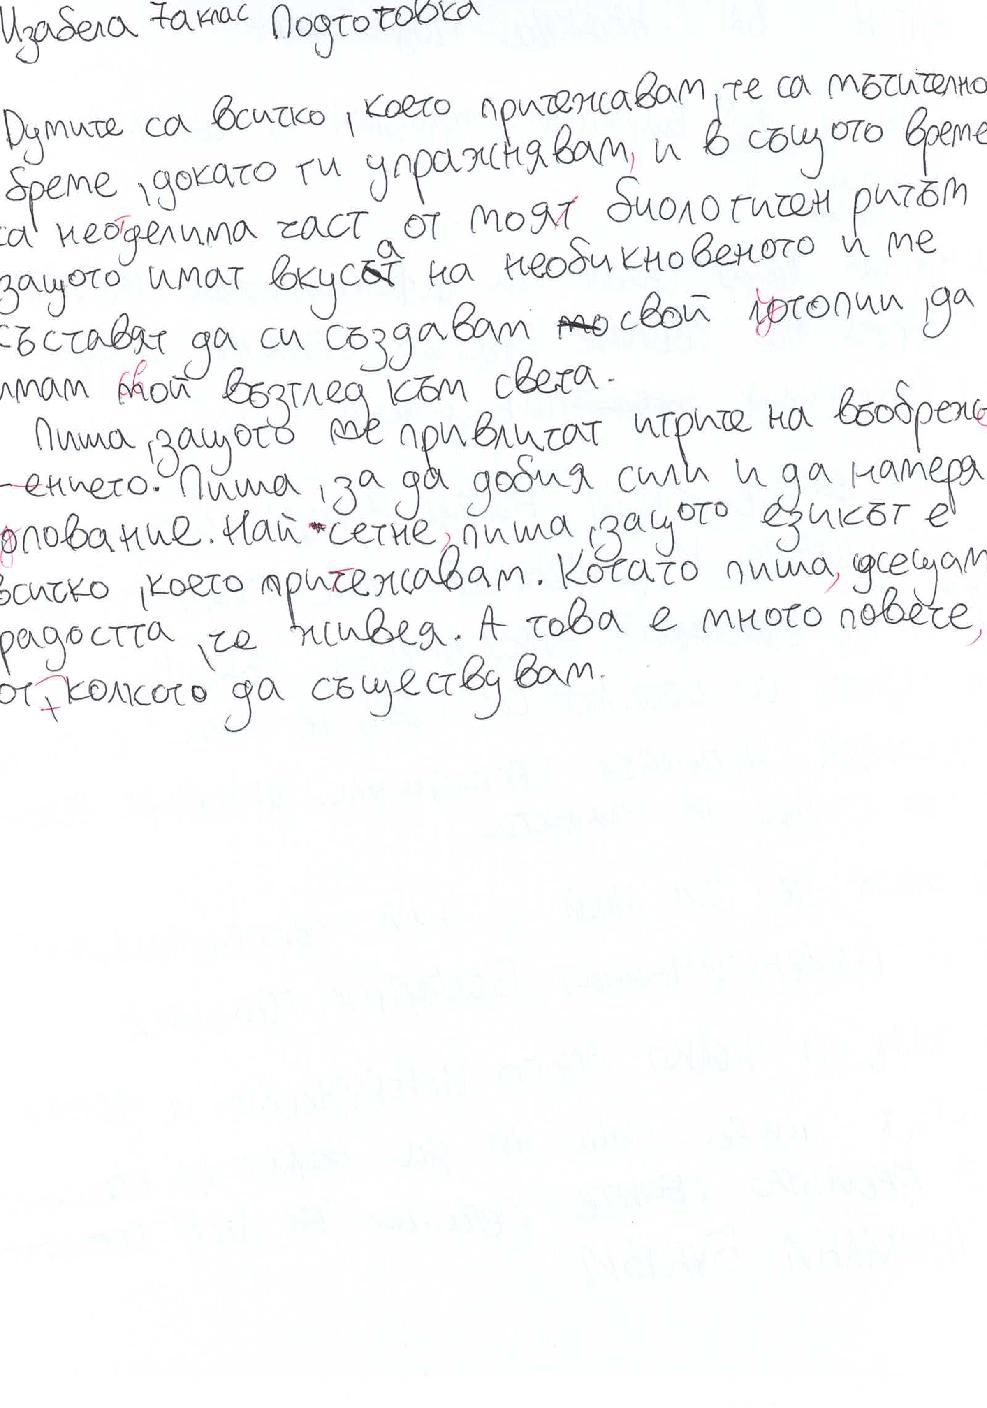 Изабела 7а клас Подготовка
Думите са всичко , което притежавам, те са мъчително
време , докато ги упражнявам, и в същото време
са неоделима част от моят биологичен ритъм
защото имат вкуса на необикновеното и ме
съставят да си създавам свой утопии , да
имам свой възглед към света.
Пиша , защото ме привличат игрите на въображе
-ението. Пиша , за да добия сили и да намеря
упование. Най-сетне, пиша , защото езикът е
всичко , което притежавам. Когато пиша, усещам
радостта , че живея. А това е много повече,
от колкото да съществувам.